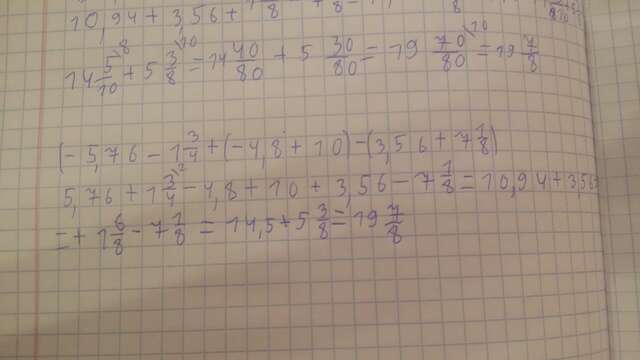 10,94 + 3,56 +
14 5/10 + 5 3/8 = 14 40/80 + 5 30/80 = 19 70/80 = 19 7/8
(- 5,76 - 1 3/4 + (- 4,8 + 10) - (3,56 + 7 1/8)
5,76 + 1 3/4 - 4,8 + 10 + 3,56 - 7 1/8 = 10,94 + 3,56
= + 1 6/8 - 7 1/8 = 14,5 + 5 3/8 = 19 7/8